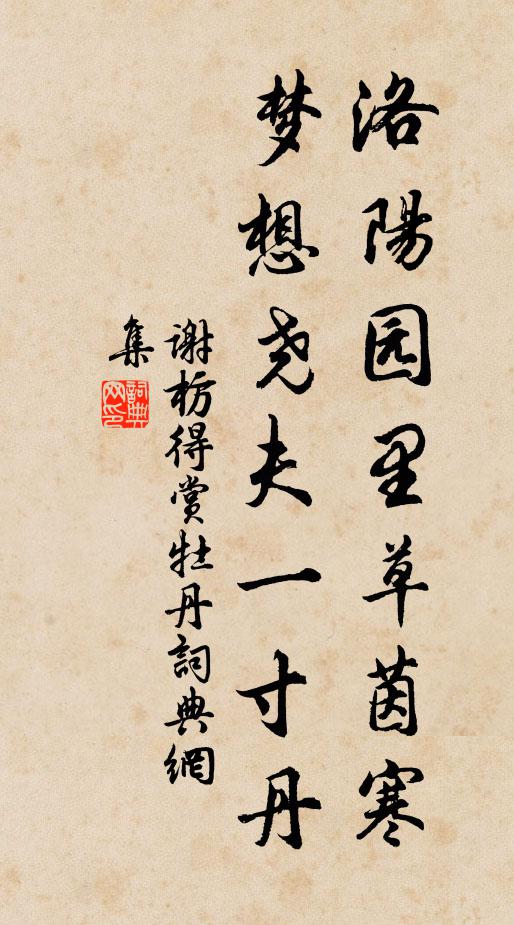 洛陽园里草茵寒
梦想尧夫一寸丹
谢枋得赏牡丹詞典網
集
詞典
网印